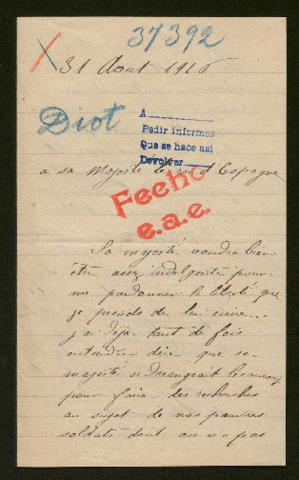 37392
31 Aout 1916
Diot
A
Pedir informes
Que se hace asi
Devolver
a sa Majesté le roi d'Espagne
Fecho
e.a.e.
Sa majesté voudra bien
être assez indulgente pour
me pardonner la liberté que
je prends de lui écrire.
j'ai déjà tant de fois
entendu dire que sa
majesté se dérangeait beaucoup
pour faire des recherches
au sujet de nos pauvres
soldats dont on n'a pas